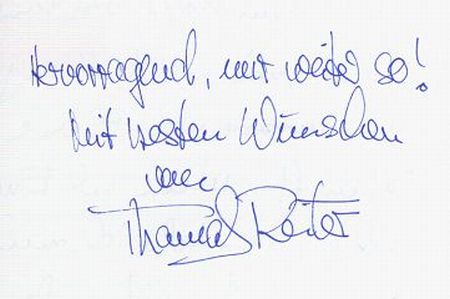 Hervorragend, nur weiter so!
Mit besten Wünschen
von
Thomas Reiter